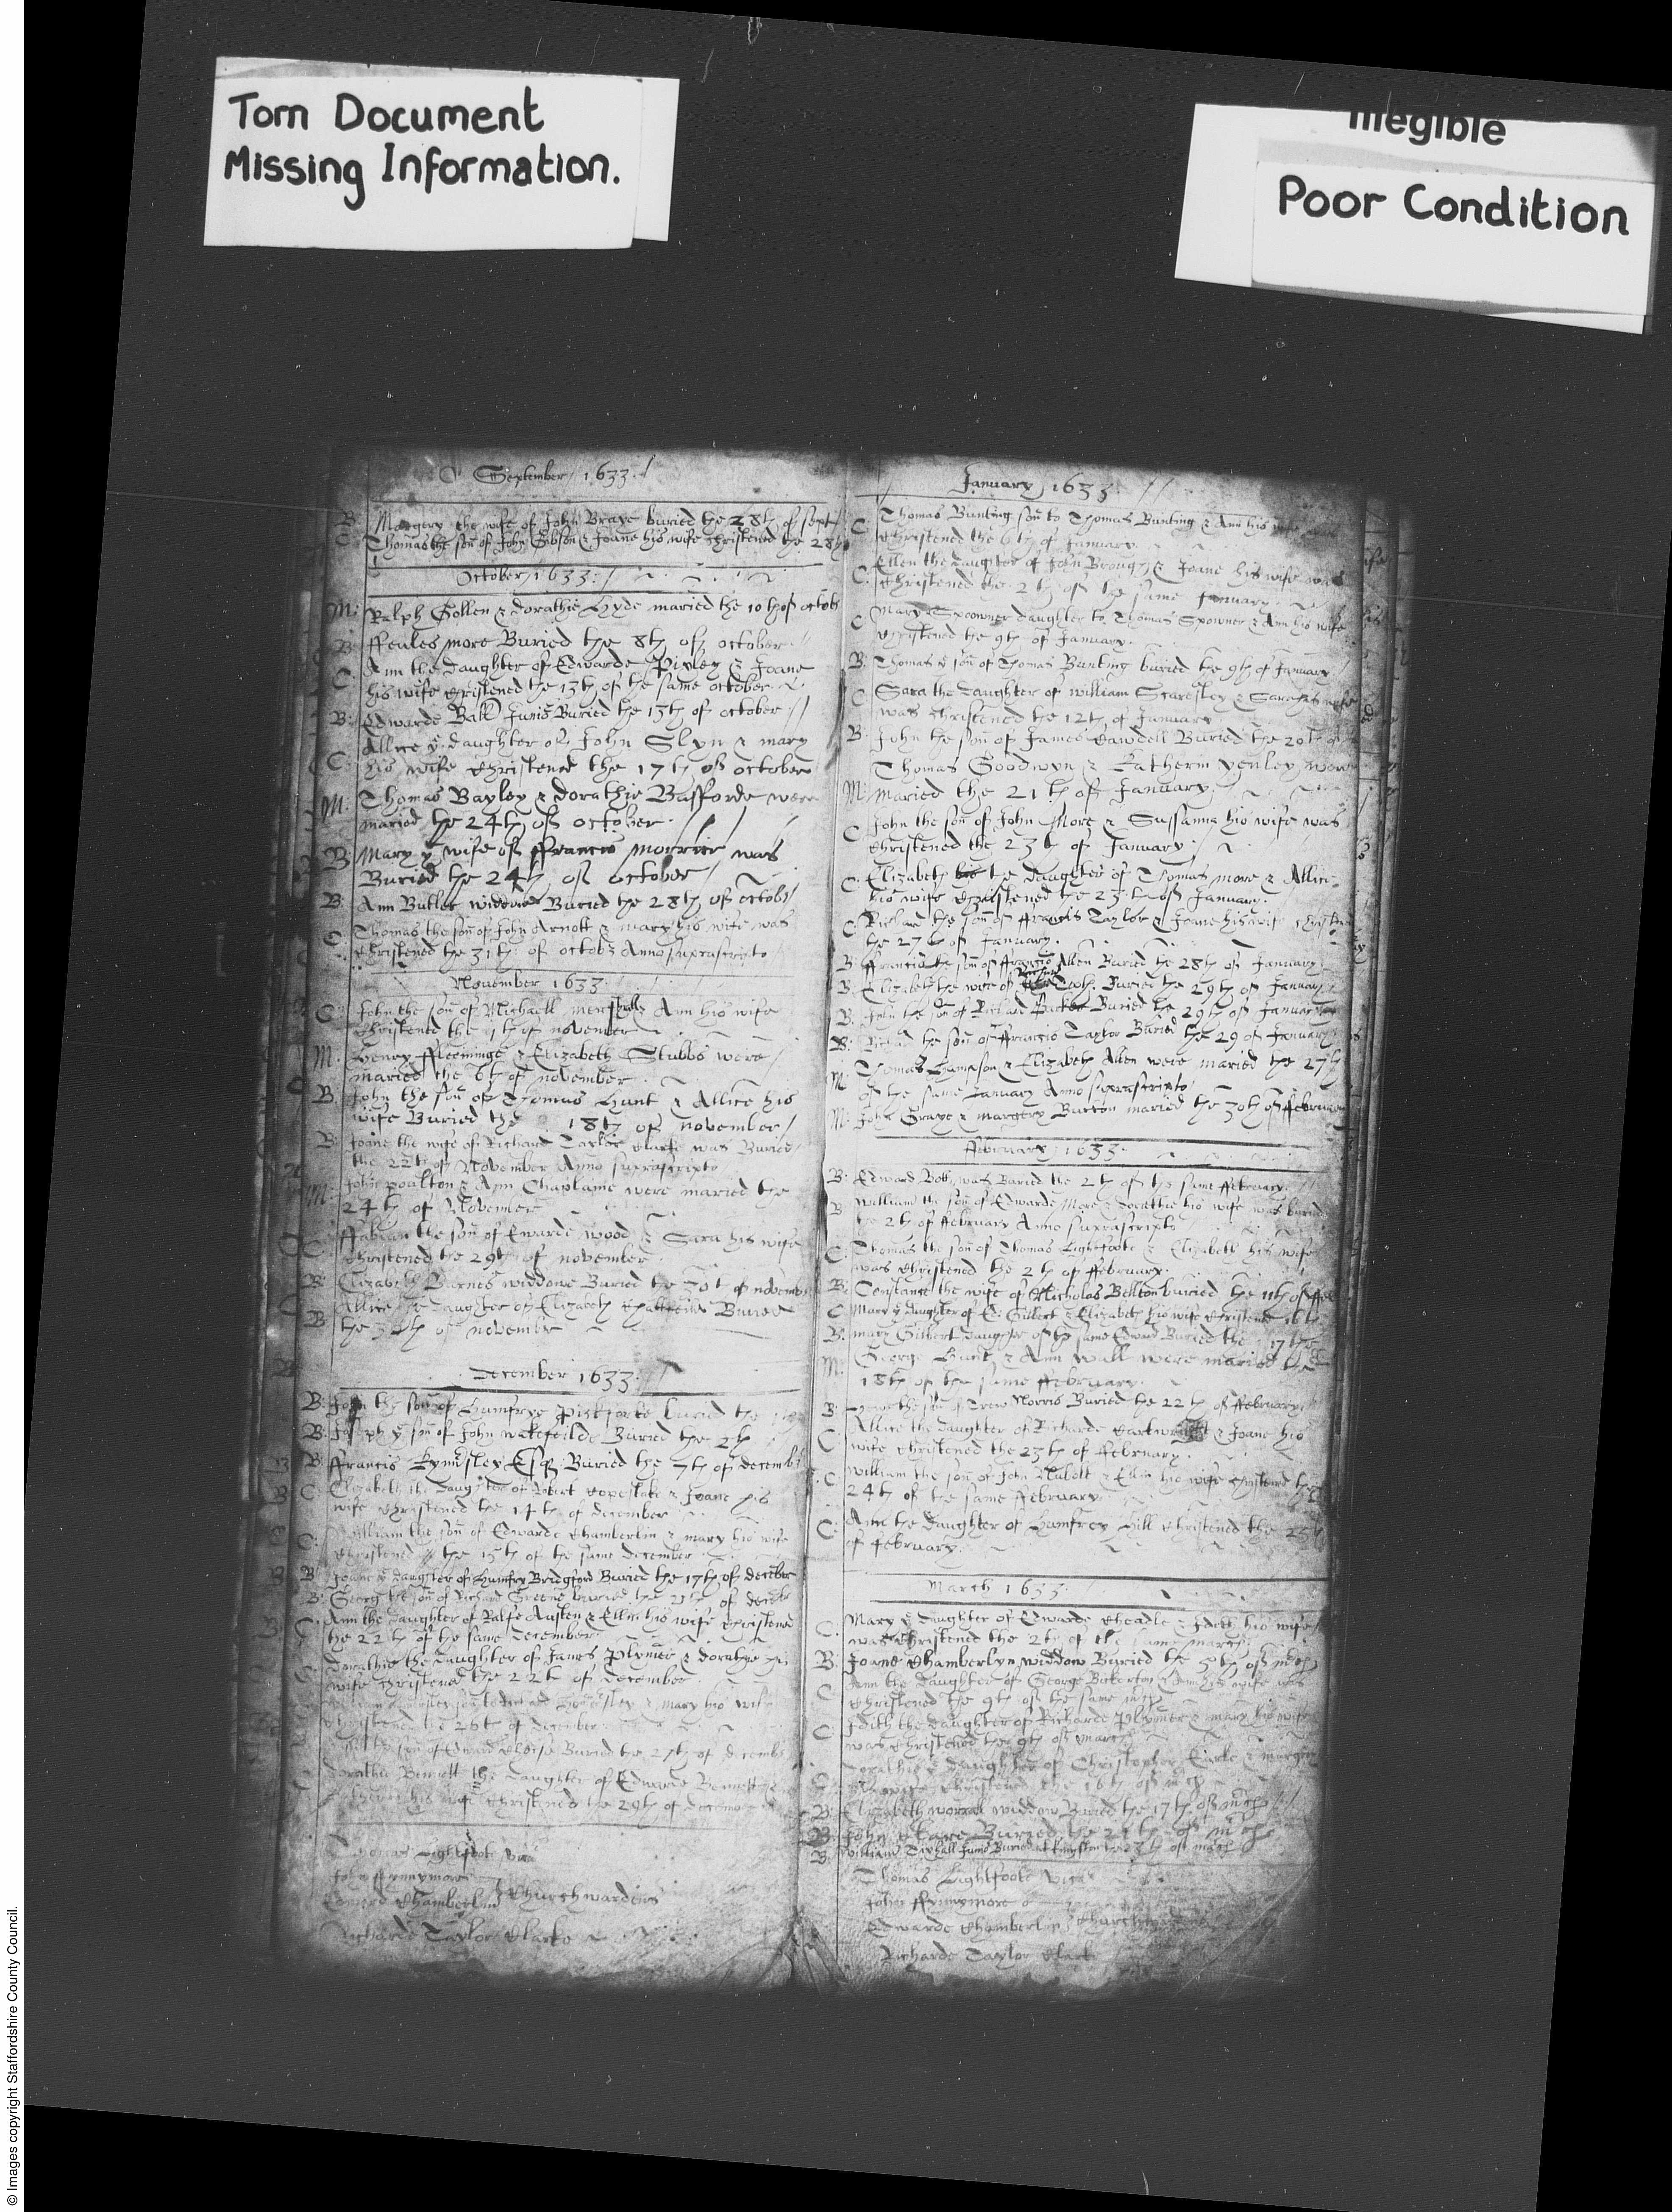 Torn Document
Missing Information.
Illegible
Poor Condition
September 1633
B: Margery the wife of John Braye buried the 28th of Sept
C: Thomas the son of John Gibson & Joane his wife christened the 28th
October 1633
M: Ralph Gollen & dorathie Hyde maried the 10th of octob
B: ffeules more Buried the 8th of october
C: Ann the daughter of Edwarde Pixley & Joane
his wife christened the 13th of the same october
B: Edwarde Ball Junio Buried the 15th of october
C: Allice ye daughter of John Slyn & mary
his wife christened the 17th of october
M: Thomas Bayley & dorathie Bafforde were
maried the 24th of october
B: Mary ye wife of ffrancis was
Buried the 24th of october
B: Ann Butler widdow Buried the 28th of octob
C: Thomas the son of John Arnott & mary his wife was
christened the 31th of octob Anno suprascripto
November 1633
C: John the son of Michaell & Ann his wife
christened the of november
M: Henry ffleeminge & Elizabeth Stubbs were
maried the 6th of november
B: John the son of Thomas Hunt & Allice his
wife Buried the 18th of november
B: Joane the wife of Richard Taylor clarke was Buried
the 22th of November Anno suprascripto
M: John poulton & Ann Chaplaine were maried the
24th of November
C: ffabian the son of Ewarde wood & Sara his wife
christened the 29th of november
B: Elizabeth Barnes widdowe Buried the 30th of novemb
B: Allice the daughter of Elizabeth Buried
the of november
december 1633
B: John the son of Humfrye Pickforke buried the
B: Joseph ye son of John wakefeilde Buried the 2th
B: ffrancis Kynnersley Esq Buried the 7th of decemb
C: Elizabeth the daughter of Robert Copestake & Joane his
wife christened the 14th of december
C: William the son of Edwarde Chamberlin & mary his wife
christened the 15th of the same december
B: Joane ye daughter of Humfry Bridgford Buried the 17th of december
B: Georg the son of Richard Greene buried the 21th of decēb
C: Ann the daughter of Ralfe Austen & Ellin his wife christened
the 22th of the same december
C: Dorathie the daughter of James Plymer & dorathye his
wife christened the 22th of december
& mary his wife
christened the 26th of december
the son of Edward Buried the 27th of decemb
C: dorathie Bennett the daughter of Edwarde Bennett &
his wife christened the 29th of december
Thomas Lightfoot vica
John ffynnymore
Edward Chamberlin Churchwardens
Richarde Taylor Clarke
January 1633
C: Thomas Bunting son to Thomas Bunting & Ann his wife
christened the 6th of January
C: Ellen the daughter of John Brough & Joane his wife was
christened the 2th of the same January
C: Mary Spooner daughter to Thomas Spowner & Ann his wife
christened the 9th of January
B: Thomas ye son of Thomas Bunting buried the 9th of January
C: Sara the daughter of william Staresley & Sara his wife
was christened the 12th of January
B: John the son of James Cawdell Buried the 20th of
Thomas Goodwyn & Katherin yenley were
M: maried the 21th of January
C: John the son of John More & Sussanna his wife was
christened the 23th of January
C: Elizabeth the daughter of Thomas more & Allice
his wife christened the 23th of January
C: Richard the son of ffrancis Taylor & Joane his wife christn
the 27th of January
B: ffrancis the son of ffrancis Allen Buried the 28th of January
B: Elizabeth the wife of Richard Buried the 29th of January
B: John the son of Richard Parker Buried the 29th of January
B: Richard the son of ffrancis Taylor Buried the 29 of January
M: Thomas Hampson & Elizabeth Allen were maried the 27th
of the same January Anno suprascripto
M: John Graye & margery Burton maried the 30th of ffebruary
ffebruary 1633
B: Edward Bott was Buried the 2th of the same ffebruary
B: William the son of Edwarde More & dorathie his wife was buried
the 2th of ffebruary Anno suprascripto
C: Thomas the son of Thomas Lightfoote & Elizabeth his wife
was christened the 2th of ffebruary
B: Constance the wife of Nicholas Belton buried the 11th of ffe
C: Mary ye daughter of E: Gilbert & Elizabeth his wife christened 16th
B: mary Gilbert daughter of the same Edward Buried the 17th
M: George Hunt & Ann Wall were maried the
18th of the same ffebruary
B: the son of Drew Norris Buried the 22th of ffebruary
C: Allice the daughter of Richarde Cartwright & Joane his
wife christened the 23th of ffebruary
C: William the son of John Nabott & Ellin his wife christened the
24th of the same ffebruary
C: Ann the daughter of Humfrey Hill christened the 25th
of ffebruary
March 1633
C: Mary ye daughter of Edwarde Cheadle & Edeth his wife
was christened the 2th of the same march
B: Joane Chamberlyn widdow Buried the 5th of mch
C: Ann the daughter of George Bickerton & Ann his wife was
christened the 9th of the same mch
C: Edith the daughter of Richarde Plymer & mary his wife
was christened the 9th of march
C: Dorathie ye daughter of Christopher Earle & margery
his wife christened the 16th of mch
B: Elizabeth worrall widdow Buried the 17th of mch
B: John Clare Buried the 21th of mch
B: William Tixhall Junio Buried at Kingston the 23th of march
Thomas Lightfoote Vica
John ffynnymore
Edwarde Chamberlin Churchwardens
Richarde Taylor Clarke
© Images copyright Staffordshire County Council.